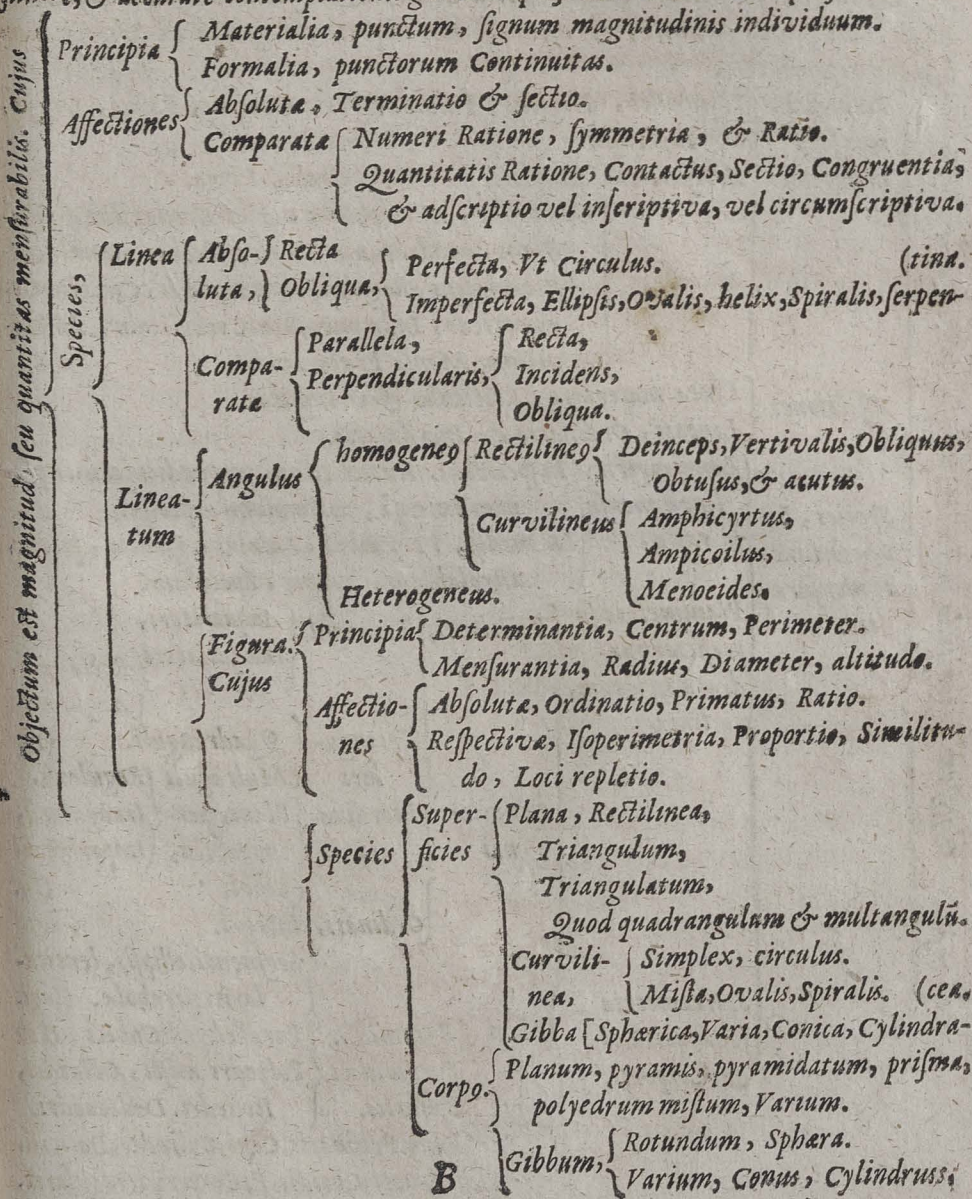 Objectum est magnitudo seu quantitas mensurabilis. Cujus
Principia
Materialia, punctum, ſignum magnitudinis individuum.
Formalia, punctorum Continuitas.
Affectiones
Abſolutæ, Terminatio & ſectio.
Comparatæ Numeri Ratione, ſymmetria, & Ratio.
Quantitatis Ratione, Contactus, Sectio, Congruentia,
& adſcriptio vel inſcriptiva, vel circumſcriptiva.
Species,
Linea Abſo- Recta
luta, Obliqua, Perfecta, Vt Circulus. (tina.
Imperfecta, Ellipſis, Ovalis, helix, Spiralis, ſerpen-
Compa-
ratæ
Parallela,
Perpendicularis,
Recta,
Incidens,
Obliqua.
Linea-
tum
Angulus
homogeneꝰ Rectilineꝰ Deinceps, Vertivalis, Obliquus,
Obtuſus, & acutus.
Curvilineus Amphicyrtus,
Ampicoilus,
Menoeides.
Heterogeneus.
Figura.
Cujus
Principia Determinantia, Centrum, Perimeter.
Menſurantia, Radius, Diameter, altitudo.
Affectio-
nes
Abſolutæ, Ordinatio, Primatus, Ratio.
Reſpectivæ, Iſoperimetria, Proportio, Similitu-
do, Loci repletio.
Species
Super-
ficies
Plana, Rectilinea,
Triangulum,
Triangulatum,
Quod quadrangulum & multangulū.
Curvili-
nea,
Simplex, circulus.
Miſta, Ovalis, Spiralis. (cea.
Gibba [Sphærica, Varia, Conica, Cylindra-
Corpꝰ.
Planum, pyramis, pyramidatum, priſma,
polyedrum miſtum, Varium.
Gibbum,
Rotundum, Sphæra.
Varium, Conus, Cylindruss.
B